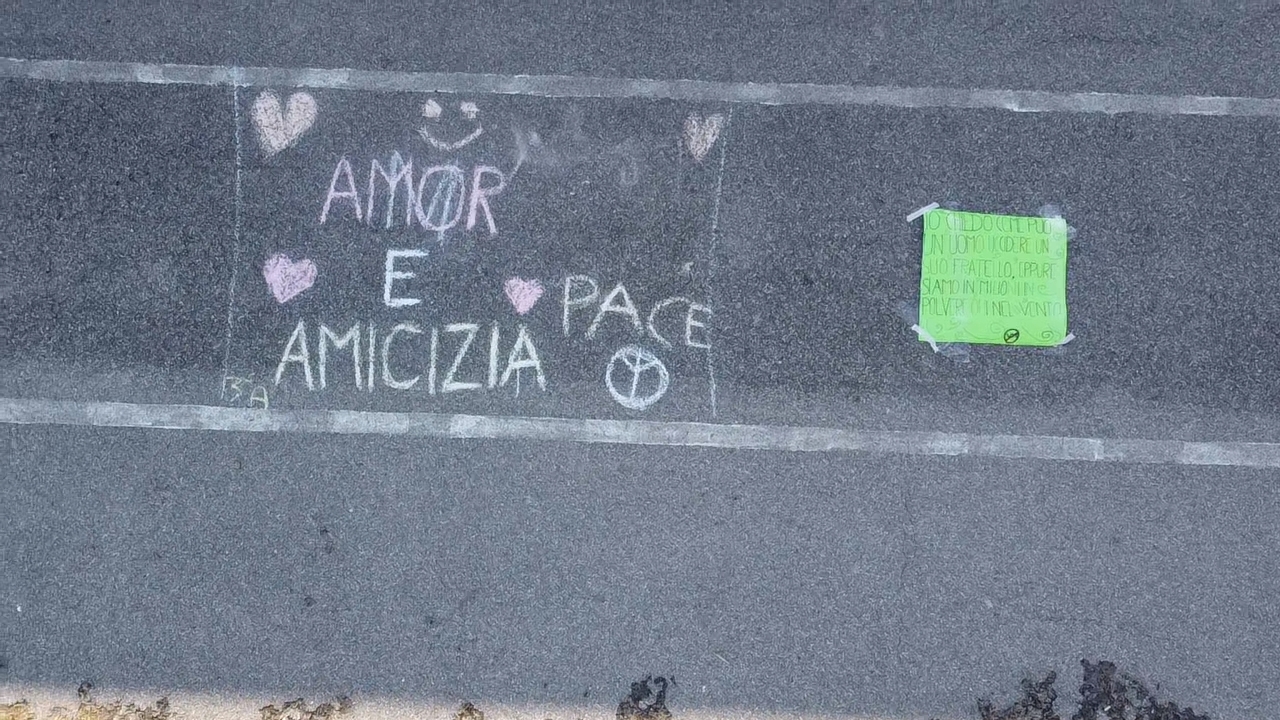 AMOR
E
AMICIZIA
PACE
IO CHIEDO COME PUÒ
UN UOMO UCCIDERE UN
SUO FRATELLO, EPPURE
SIAMO IN MILIONI IN
POLVERE QUI NEL VENTO